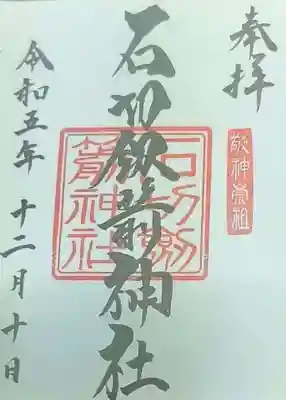 奉拝
敬神崇祖
石切劔箭神社
石切劔
箭神社
令和五年十二月十日